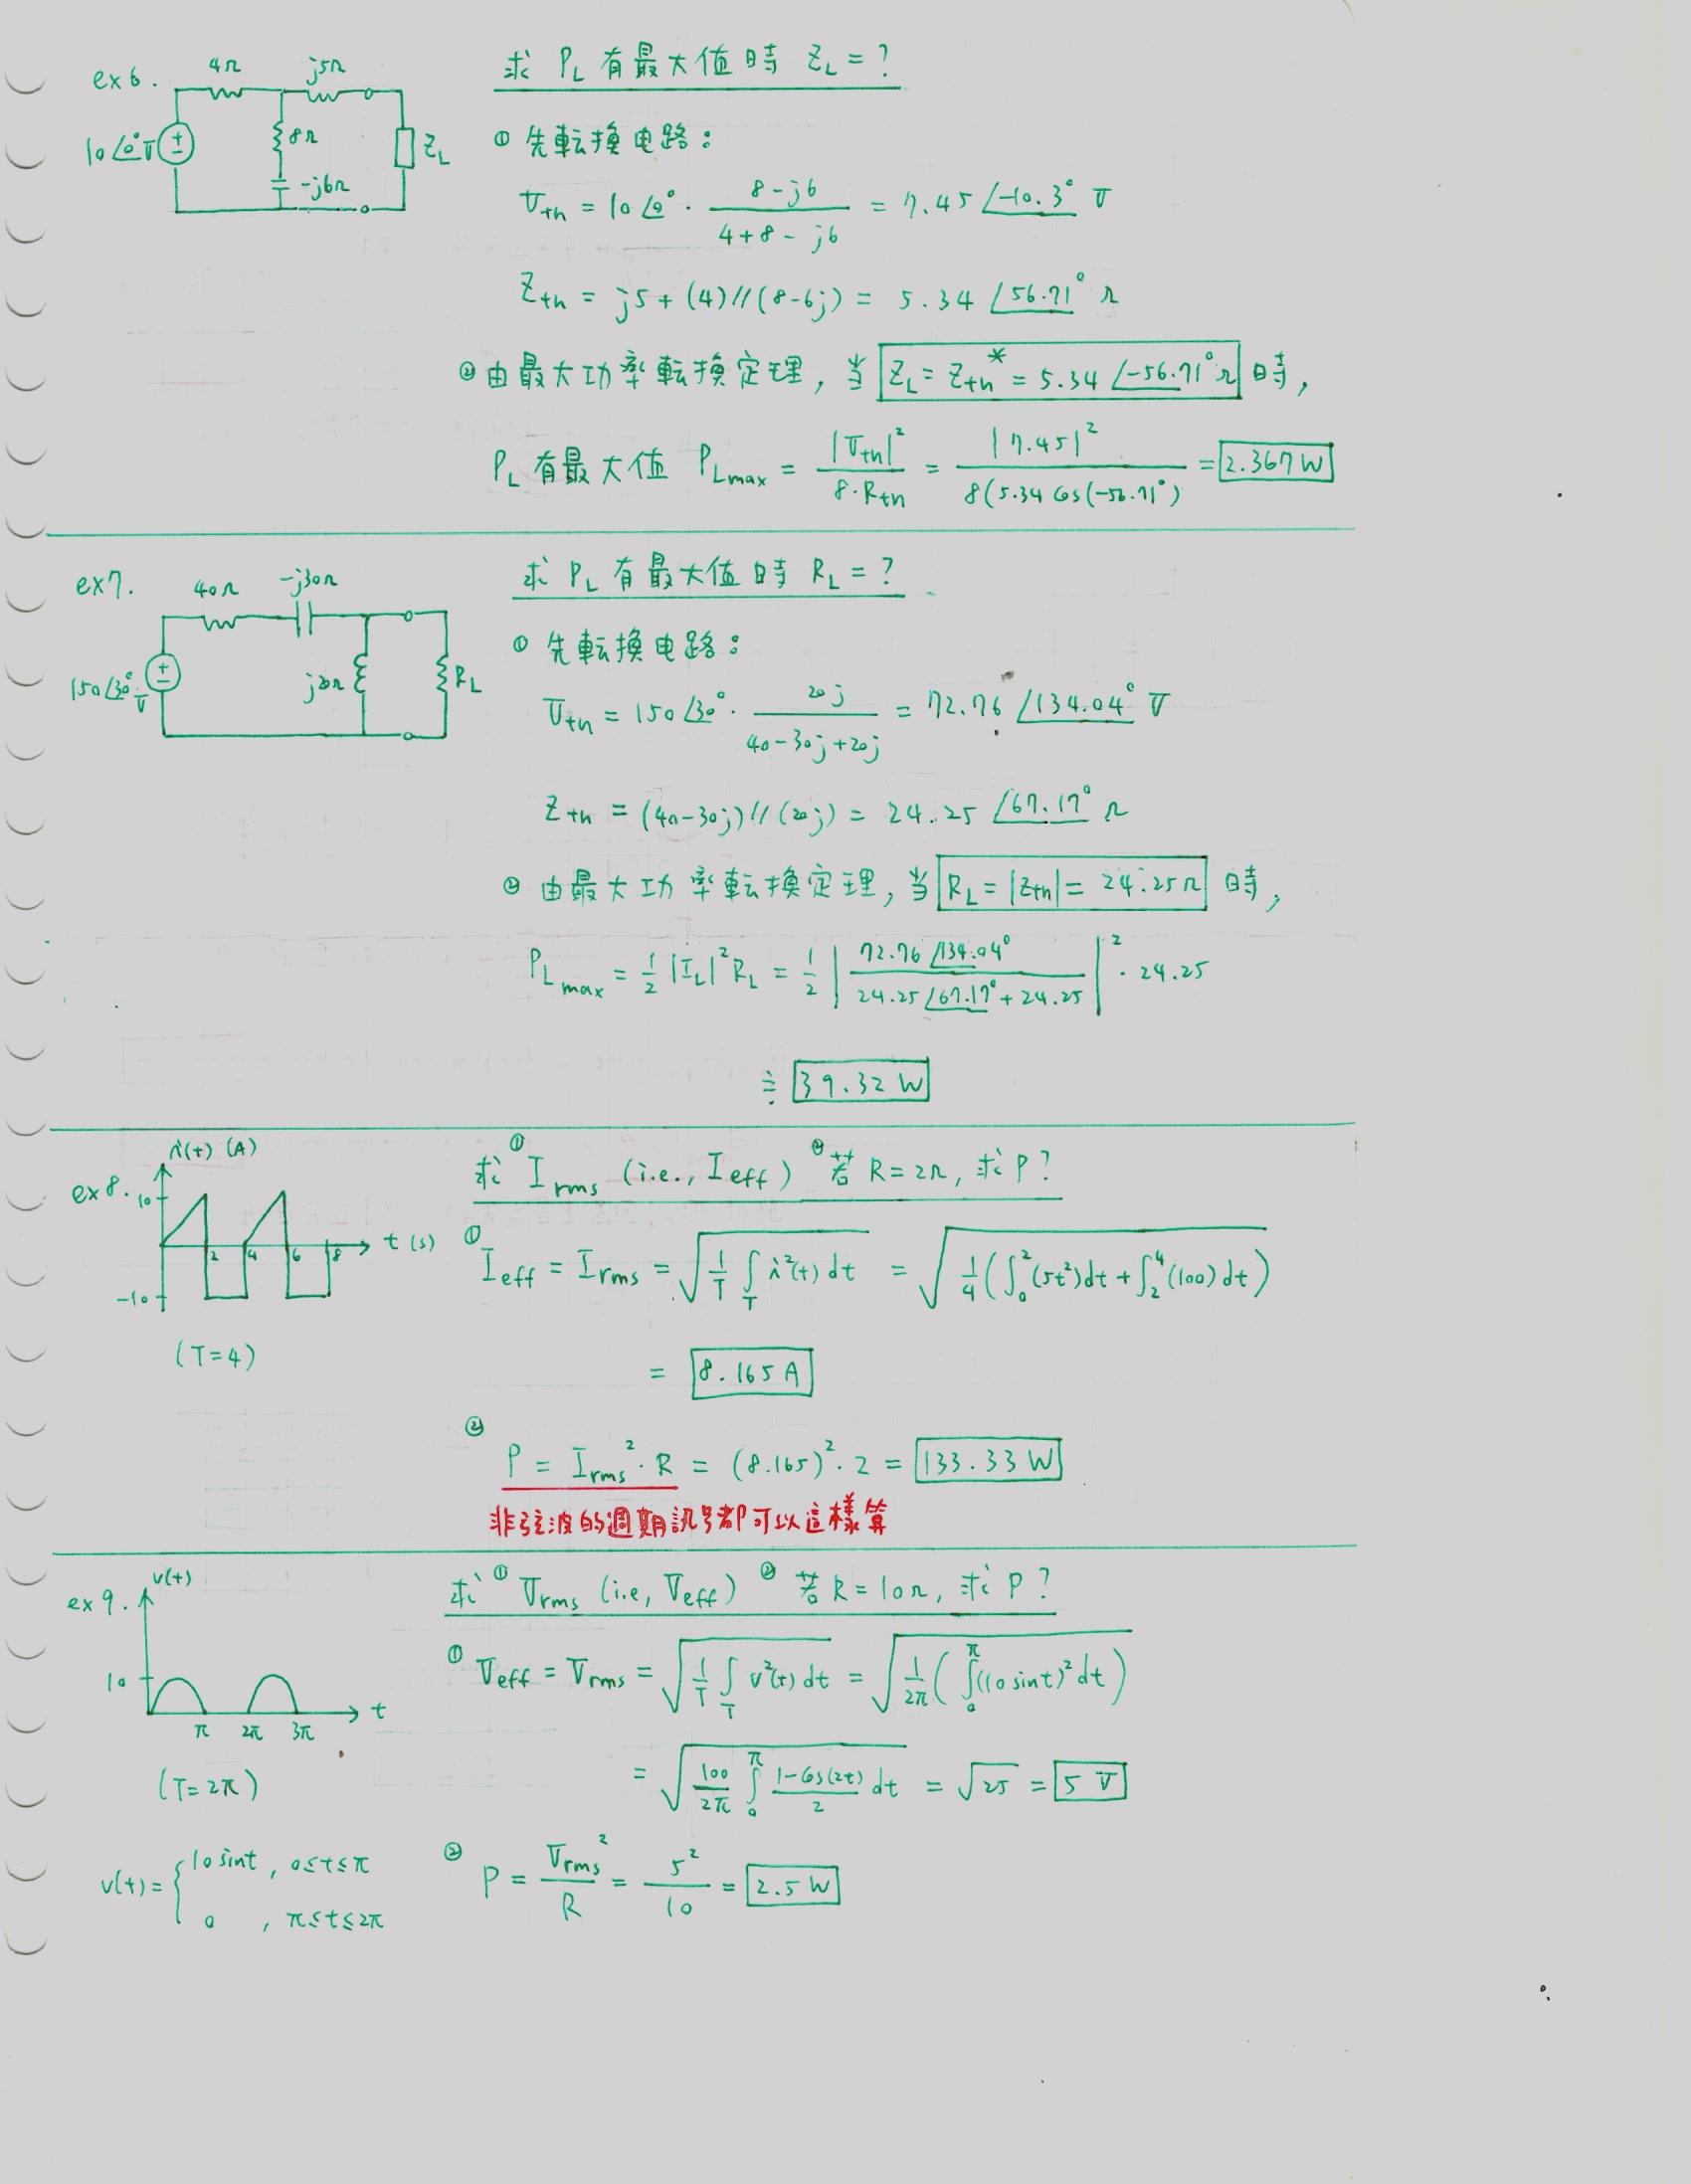 ex6.
4Ω j5Ω
10∠0° V 8Ω Z_L
-j6Ω
求 P_L 有最大值時 Z_L = ?
① 先転換电路:
V_th = 10∠0° · (8-j6)/(4+8-j6) = 7.45∠-10.3° V
Z_th = j5 + (4)//(8-6j) = 5.34∠56.71° Ω
② 由最大功率転換定理, 当 Z_L = Z_th* = 5.34∠-56.71° Ω 時,
P_L 有最大值 P_Lmax = |V_th|²/(8·R_th) = |7.45|²/(8(5.34 cos(-56.71°)) = 2.367 W
ex7.
40Ω -j30Ω
150∠30° V j20Ω R_L
求 P_L 有最大值時 R_L = ?
① 先転換电路:
V_th = 150∠30° · 20j/(40-30j+20j) = 72.76∠134.04° V
Z_th = (40-30j)//(20j) = 24.25∠67.17° Ω
② 由最大功率転換定理, 当 R_L = |Z_th| = 24.25Ω 時,
P_Lmax = 1/2 |I_L|² R_L = 1/2 |72.76∠134.04°/(24.25∠67.17° + 24.25)|² · 24.25
≒ 39.32 W
ex8.
i(t) (A)
10
2 4 6 8 t (s)
-10
(T=4)
求 ① I_rms (i.e., I_eff) ② 若 R=2Ω, 求 P?
① I_eff = I_rms = √(1/T ∫_T i²(t) dt) = √(1/4 (∫_0^2 (5t²)dt + ∫_2^4 (100) dt))
= 8.165 A
② P = I_rms² · R = (8.165)² · 2 = 133.33 W
非弦波的週期訊号都可以這樣算
ex9.
v(t)
10
π 2π 3π t
(T=2π)
v(t) = { 10 sint, 0≤t≤π
0, π≤t≤2π
求 ① V_rms (i.e, V_eff) ② 若 R=10Ω, 求 P?
① V_eff = V_rms = √(1/T ∫_T v²(t) dt) = √(1/2π (∫_0^π (10 sint)² dt))
= √(100/2π ∫_0^π (1-cos(2t))/2 dt) = √25 = 5 V
② P = V_rms²/R = 5²/10 = 2.5 W